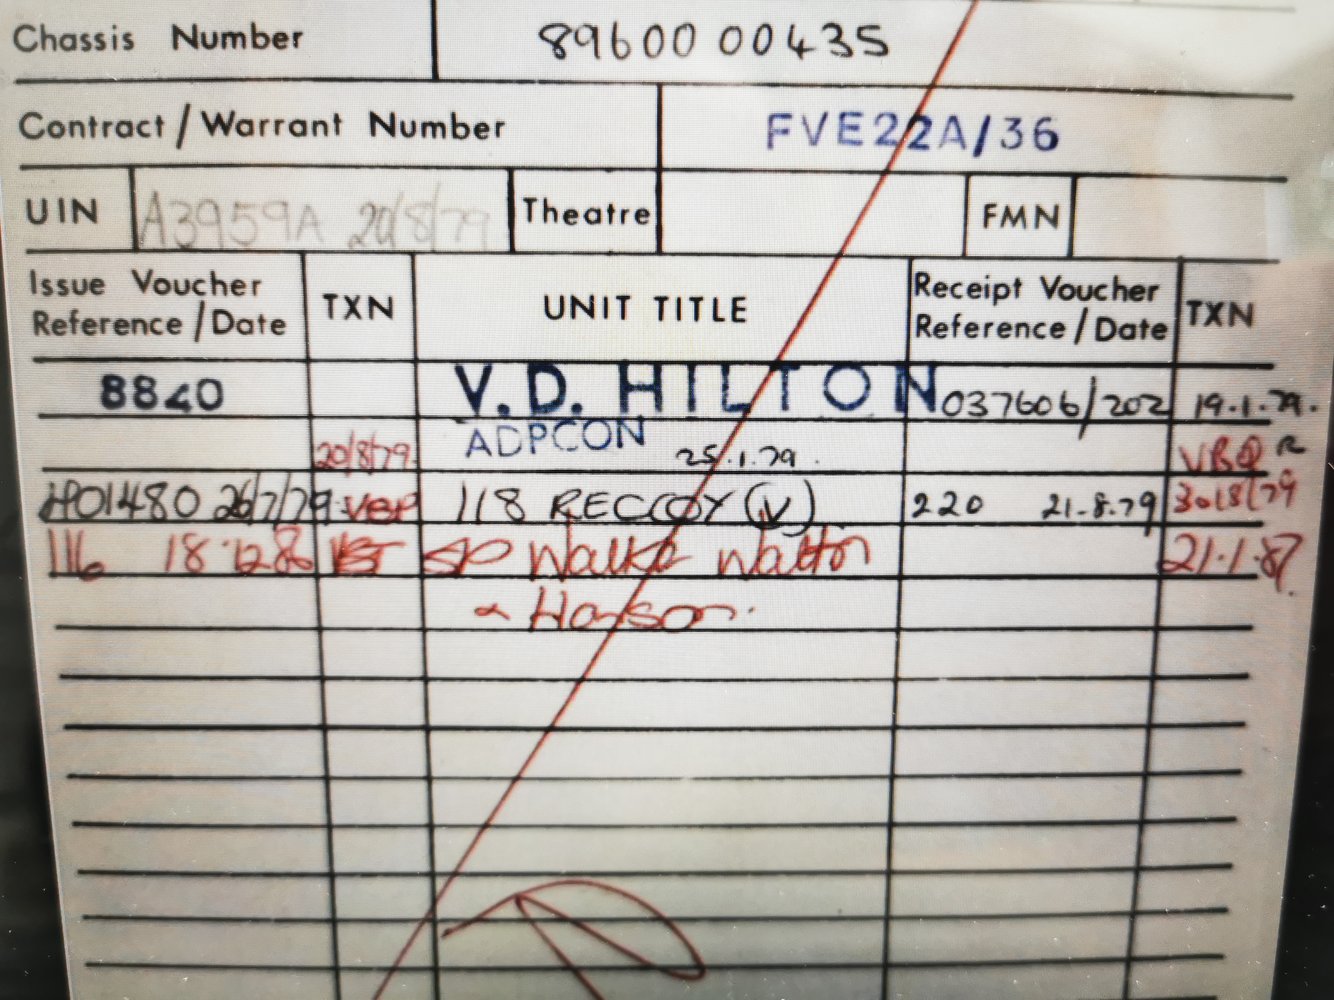 Chassis Number 89600 00435
Contract/Warrant Number FVE22A/36
UIN A3959A 20/8/79 Theatre FMN
Issue Voucher Reference/Date TXN UNIT TITLE Receipt Voucher Reference/Date TXN
8840 V.D. HILTON 037606/202 19.1.79.
20/8/79 ADPCON 25.1.79. R
26/7/79 118 RECCOY (V) 220 21.8.79 30/8/79
116 18.12.86 Walker Walton 21.1.87.
Hanson.